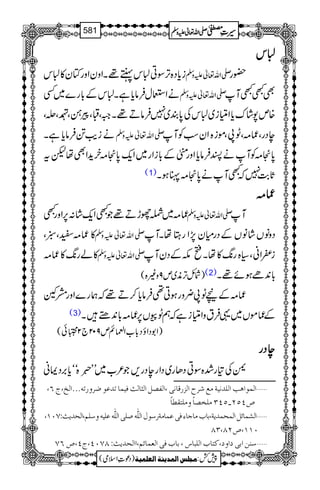 سیرتِ مصطفی صلی اللہ تعالیٰ علیہ وسلم 581
لباس
حضور صلی اللہ تعالیٰ علیہ وسلم زیادہ تر سوتی لباس پہنتے تھے۔ اون اور کتان کا لباس
بھی کبھی کبھی آپ صلی اللہ تعالیٰ علیہ وسلم نے استعمال فرمایا ہے۔ لباس کے بارے میں کسی
خاص پوشاک یا امتیازی لباس کی پابندی نہیں فرماتے تھے۔ جبہ، قبا، پیرہن، تہبند، حلہ،
چادر، عمامہ، ٹوپی، موزہ ان سب کو آپ صلی اللہ تعالیٰ علیہ وسلم نے زیب تن فرمایا ہے۔
پائجامہ کو آپ نے پسند فرمایا اور منیٰ کے بازار میں ایک پائجامہ خریدا بھی تھا لیکن یہ
ثابت نہیں کہ کبھی آپ نے پائجامہ پہنا ہو۔ (1)
عمامہ
آپ صلی اللہ تعالیٰ علیہ وسلم عمامہ میں شملہ چھوڑتے تھے جو کبھی ایک شانہ پر اور کبھی
دونوں شانوں کے درمیان پڑا رہتا تھا۔ آپ صلی اللہ تعالیٰ علیہ وسلم کا عمامہ سفید، سبز،
زعفرانی، سیاہ رنگ کا تھا۔ فتح مکہ کے دن آپ صلی اللہ تعالیٰ علیہ وسلم کالے رنگ کا عمامہ
باندھے ہوئے تھے۔ (2) (شمائل ترمذی ص۹ وغیرہ)
عمامہ کے نیچے ٹوپی ضرور ہوتی تھی فرمایا کرتے تھے کہ ہمارے اور مشرکین
کے عماموں میں یہی فرق و امتیاز ہے کہ ہم ٹوپیوں پر عمامہ باندھتے ہیں۔ (3)
(ابوداؤد باب العمائم ص۲۰۹ ج۲ مجتبائی)
چادر
یمن کی تیار شدہ سوتی دھاری دار چادریں جو عرب میں ’’حبرہ‘‘ یا بردیمانی
......المواهب اللدنية مع شرح الزرقانی، الفصل الثالث فیما تدعو ضرورته...الخ، ج ۶،
......الشمائل المحمدية، باب ماجاء فی عمامة رسول الله صلی الله علیه وسلم، الحدیث: ۱۰۷،
......سنن ابی داود، کتاب اللباس، باب فی العمائم، الحدیث: ۴۰۷۸، ج۴، ص ۷۶
پیش کش: مجلس المدینۃ العلمیۃ (دعوتِ اسلامی)